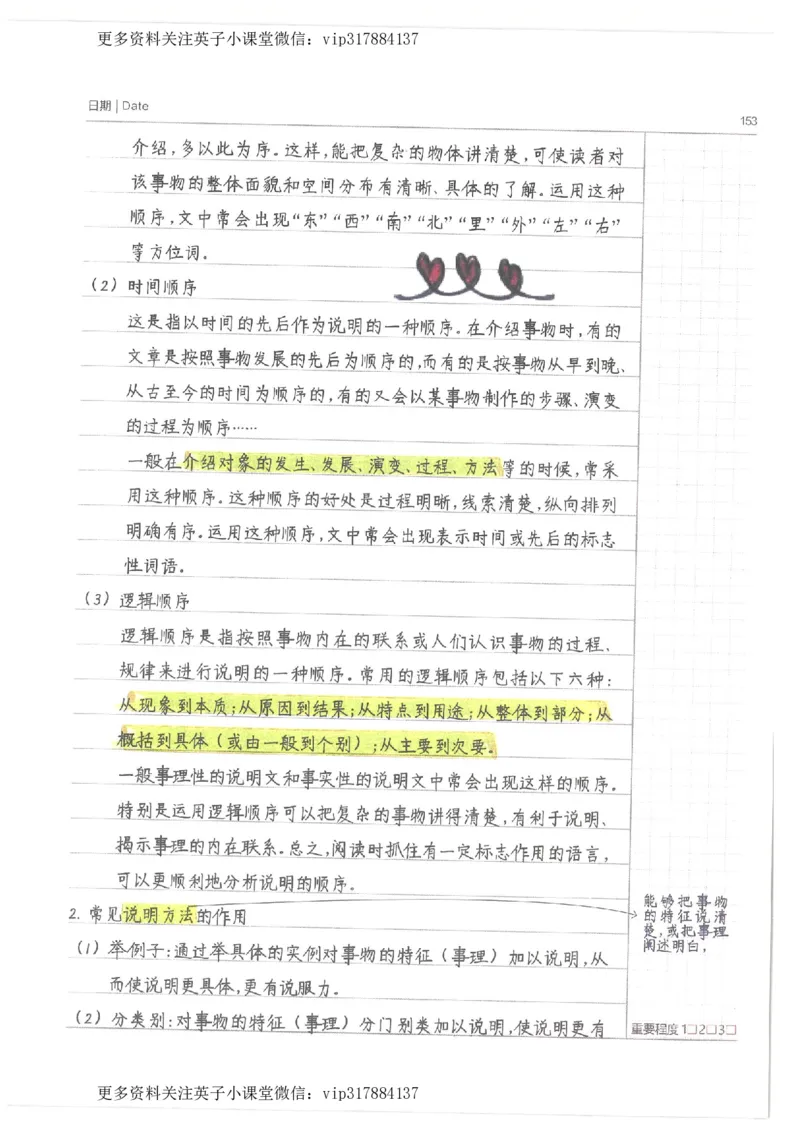 更多资料关注英子小课堂微信：vip317884137
日期 | Date
153
介绍，多以此为序。这样，能把复杂的物体讲清楚，可使读者对
该事物的整体面貌和空间分布有清晰、具体的了解。运用这种
顺序，文中常会出现“东”“西”“南”“北”“里”“外”“左”“右”
等方位词。
（2）时间顺序
这是指以时间的先后作为说明的一种顺序。在介绍事物时，有的
文章是按照事物发展的先后为顺序的，而有的是按事物从早到晚、
从古至今的时间为顺序的，有的又会以某事物制作的步骤、演变
的过程为顺序……
一般在介绍对象的发生、发展、演变、过程、方法等的时候，常采
用这种顺序。这种顺序的好处是过程明晰，线索清楚，纵向排列
明确有序。运用这种顺序，文中常会出现表示时间或先后的标志
性词语。
（3）逻辑顺序
逻辑顺序是指按照事物内在的联系或人们认识事物的过程、
规律来进行说明的一种顺序。常用的逻辑顺序包括以下六种：
从现象到本质；从原因到结果；从特点到用途；从整体到部分；从
概括到具体（或由一般到个别）；从主要到次要。
一般事理性的说明文和事实性的说明文中常会出现这样的顺序。
特别是运用逻辑顺序可以把复杂的事物讲得清楚，有利于说明、
揭示事理的内在联系。总之，阅读时抓住有一定标志作用的语言，
可以更顺利地分析说明的顺序。
2. 常见说明方法的作用
（1）举例子：通过举具体的实例对事物的特征（事理）加以说明，从
而使说明更具体，更有说服力。
（2）分类别：对事物的特征（事理）分门别类加以说明，使说明更有
能够把事物
的特征说清
楚，或把事理
阐述明白，
重要程度 1□2□3□
更多资料关注英子小课堂微信：vip317884137